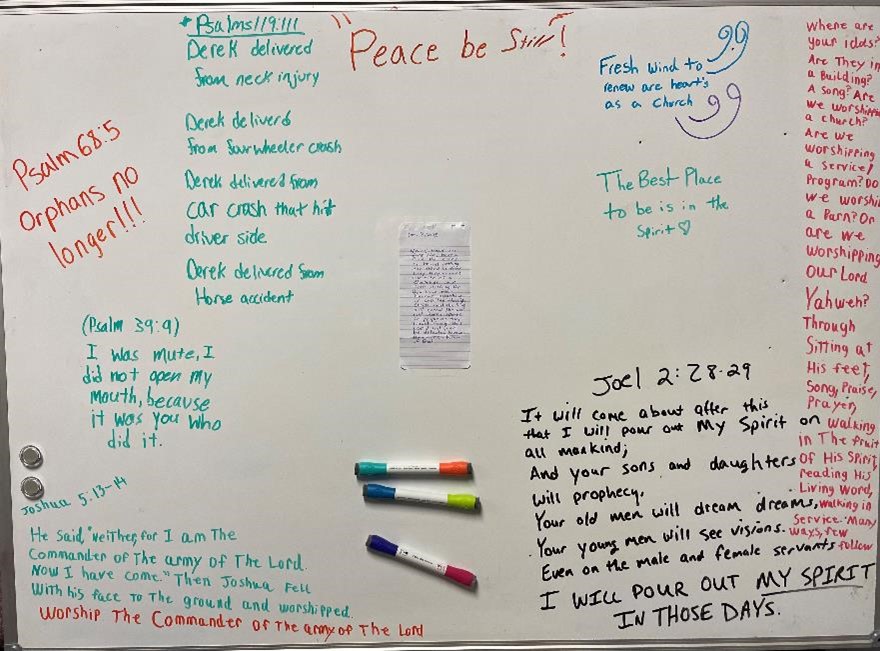 * Psalms119:111
Derek delivered
from neck injury
Derek deliverd
from fourwheeler crash
Derek delivered from
car crash that hit
driver side
Derek delivered from
Horse accident
"Peace be Still"!
Fresh wind to
renew are heart's
as a church
The Best Place
to be is in the
Spirit ♡
Psalm 68:5
Orphans no
longer!!!
(Psalm 39:9)
I was mute, I
did not open my
mouth, because
it was you who
did it.
Joshua 5:13-14
He said, "neither, for I am The
Commander of The army of The Lord.
Now I have come." Then Joshua fell
With his face To The ground and worshipped.
Worship The Commander of The army of The Lord
Joel 2:28-29
It will come about after this
that I will pour out My Spirit on
all mankind;
And your sons and daughters
will prophecy,
Your old men will dream dreams,
Your young men will see visions.
Even on the male and female servants
I WILL POUR OUT MY SPIRIT
IN THOSE DAYS.
Where are
your idols?
Are They in
a Building?
A Song? Are
we worshipping
a church?
Are we
worshipping
a service/
Program? Do
we worship
a Barn? Or
are we
worshipping
our Lord
Yahweh?
Through
Sitting at
His feet,
Song, Praise,
Prayer,
walking
in The fruit
of His Spirit,
reading His
Living Word,
walking in
Service. Many
ways, few
follow